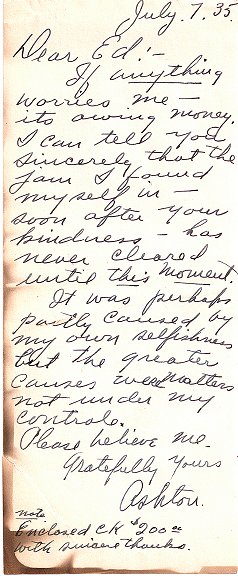 July. 7. 35.
Dear Ed:-
If anything
worries me -
its owing money.
I can tell you
sincerely that the
jam I found
myself in -
soon after your
kindness - has
never cleared
until this moment.
It was perhaps
partly caused by
my own selfishness
but the greater
causes were matters
not under my
controle.
Please believe me -
Gratefully Yours
Ashton.
note
Enclosed ck $200.00
with sincere thanks.